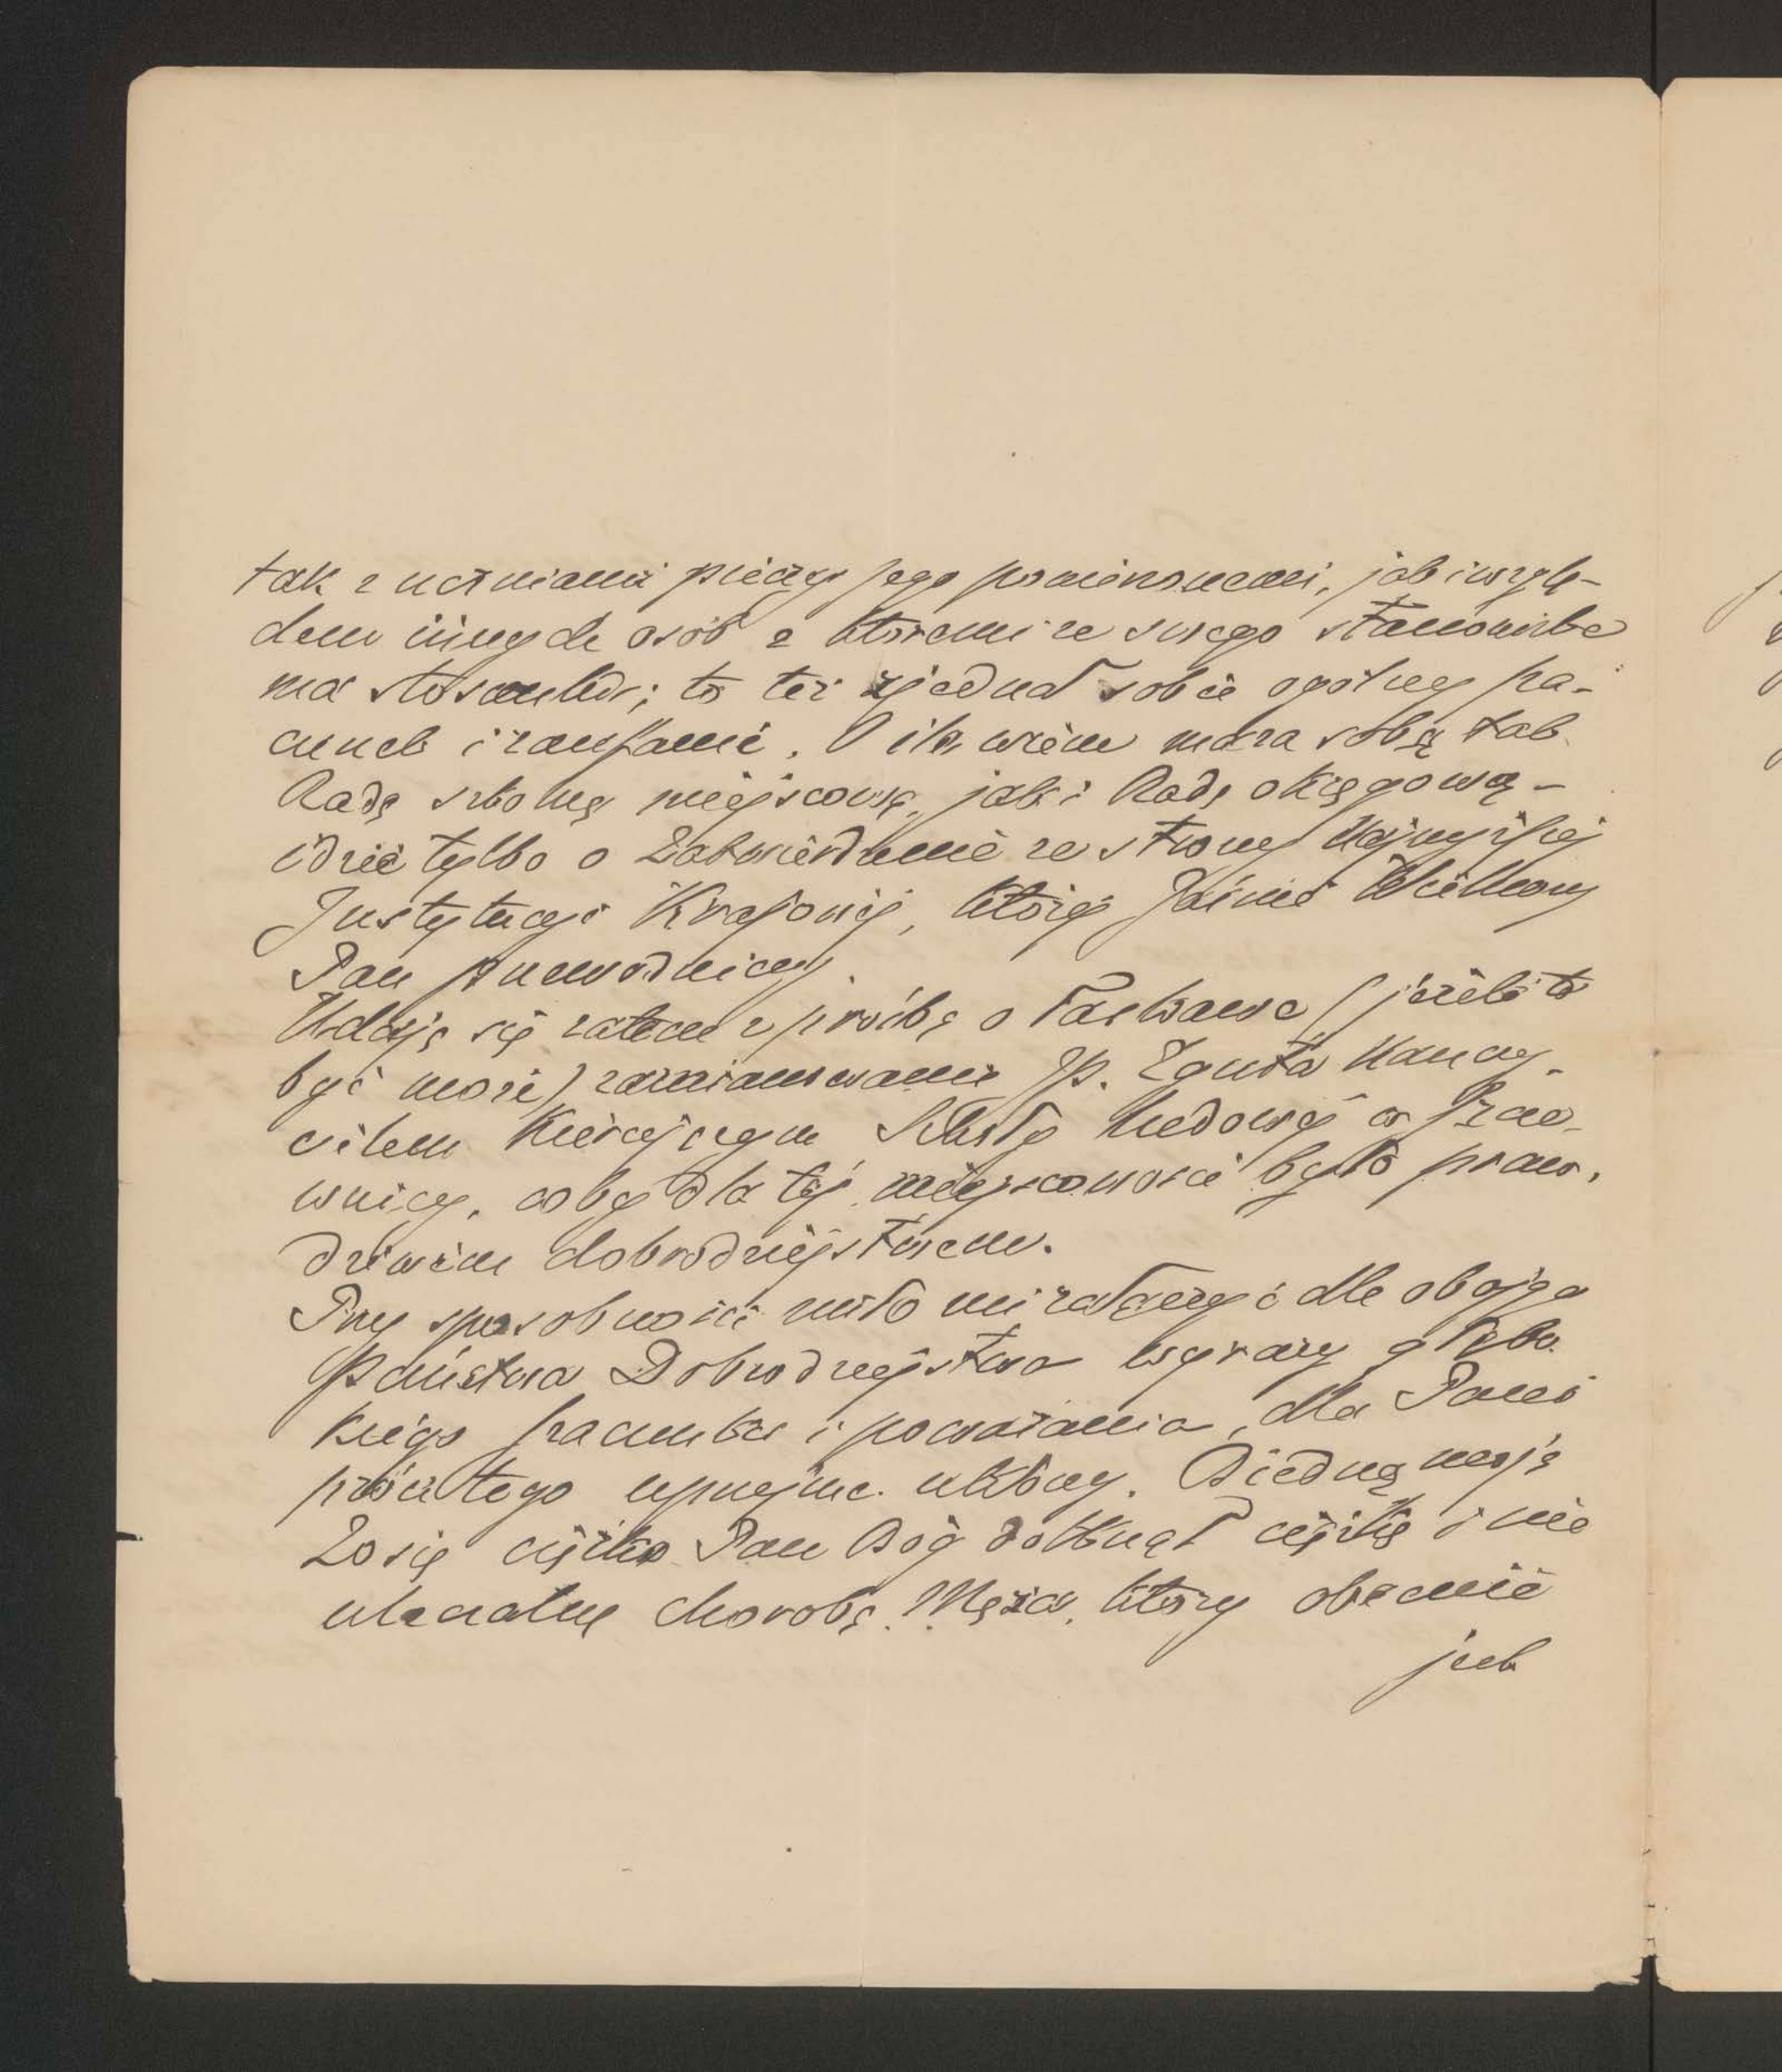 tak z uczniami pieczy jego powierzonemi, jak i wzglę-
dem innych osób z któremi ze swego stanowiska
ma stosunki; to też zjednał sobie ogólny sza-
cunek i zaufanie. O ile wiem ma za sobą tak
Radę szkolną miejscową, jak i Radę okręgową –
idzie tylko o zatwierdzenie ze strony Najwyższej
Instytucyi Krajowej, której Jaśnie Wielmożny
Pan przewodniczy.
Udaję się zatem z prośbą o łaskawe (jeżeli to
być może) zamianowanie JP. nauczy-
cielem kierującym Szkoły ludowej w Szcza-
wnicy, coby dla tej miejscowości było praw-
dziwém dobrodziejstwem.
Przy sposobności miło mi załączyć dla obojga
Państwa Dobrodziejstwa wyrazy głębo
kiego szacunku i poważania, dla Pani
prócz tego uprzejme ukłony. Biedną moję
Zosię ciężko Pan Bóg dotknął ciężką i nie
uleczalną chorobą Męża, który obecnie
jest